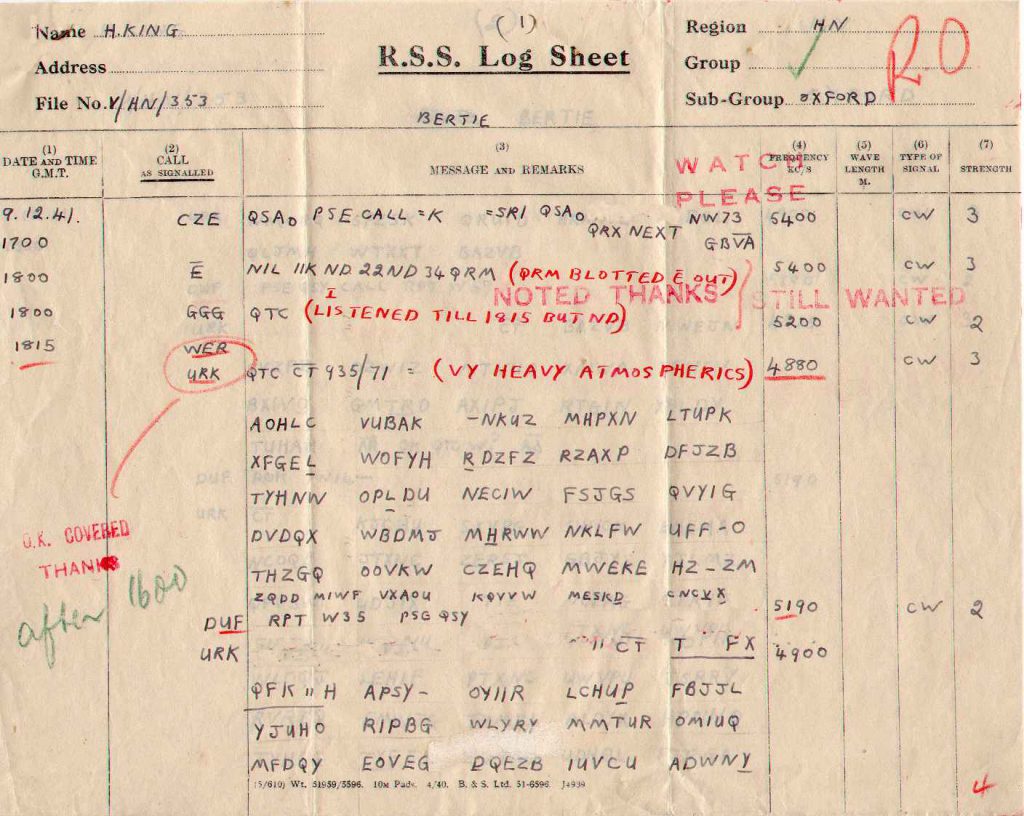 Name H.KING
(1)
Region HN
R.S.S. Log Sheet
RO
Address
Group
File No. Y/HN/353
Sub-Group OXFORD
BERTIE
(1) DATE AND TIME G.M.T.
(2) CALL AS SIGNALLED
(3) MESSAGE AND REMARKS
(4) FREQUENCY KC/S
(5) WAVE LENGTH M.
(6) TYPE OF SIGNAL
(7) STRENGTH
WATCH
PLEASE
9.12.41. CZE QSAO PSE CALL = K =SRI QSAO NW73 5400 CW 3
1700 QRX NEXT GBVA
1800 E NIL 11K ND 22ND 34 QRM (QRM BLOTTED E OUT) 5400 CW 3
NOTED THANKS STILL WANTED
1800 GGG QTC (LISTENED TILL 1815 BUT ND) 5200 CW 2
1815 WER
URK QTC CT 935/71 = (VY HEAVY ATMOSPHERICS) 4880 CW 3
AOHLC VUBAK -NKUZ MHPXN LTUPK
XFGEL WOFYH RDZFZ RZAXP DFJZB
TYHNW OPLDU NECIW FSJGS QVYIG
DVDQX WBDMJ MHRWW NKLFW UFF-O
O.K. COVERED
THANKS
THZGQ OOVKW CZEHQ MWEKE HZ-ZM
after 1600
ZQDD MIWF VXAOU KQVVW MESKD CNCVX
DUF RPT W35 PSG QSY 5190 CW 2
URK " CT T FX 4900
QFK"H APSY- OY11R LCHUP FBJJL
YJUHO RIPBG WLYRY MMTUR OMIUQ
MFDQY EOVEG DQEZB IUVCU ADWNY
(5/610) Wt. 51959/5596. 10M Pads. 4/40. B. & S. Ltd. 51-6596. J4939
4